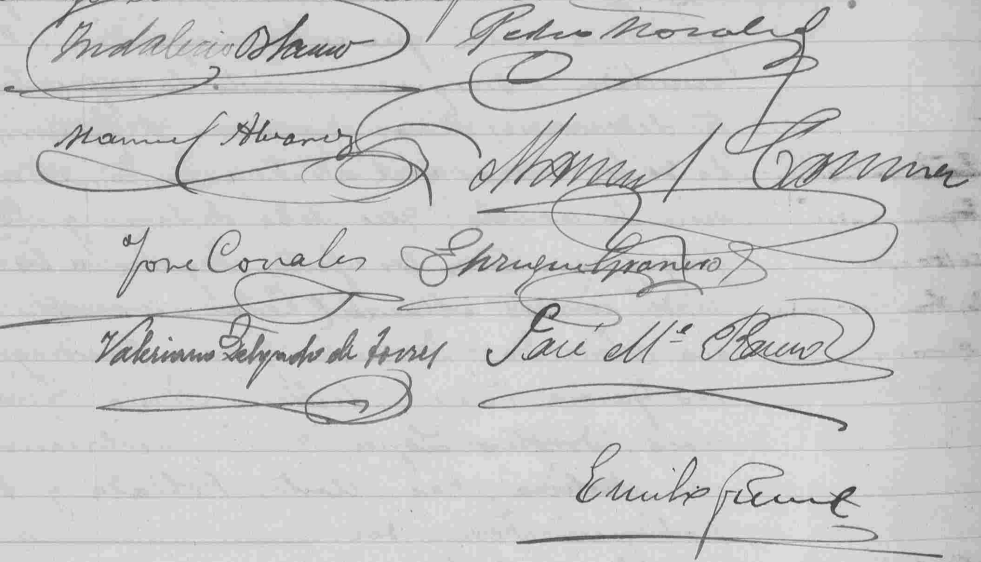 Indalecio Blanco Pedro Morales
Manuel Alvarez Manuel
Jose Corrales Enrique Granero
Valeriano Delgado de Torres José Mª
Emilio